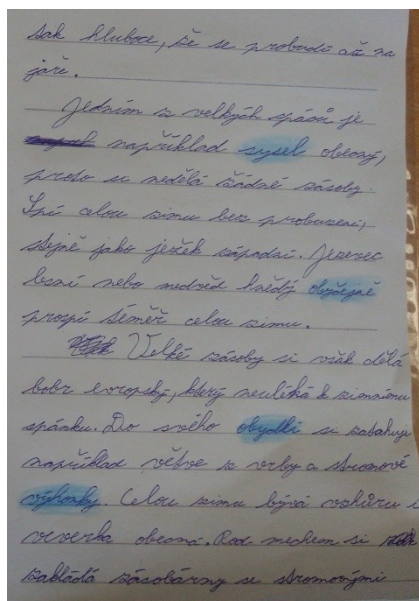 tak hluboce, že se probudí až na
jaře.
Jedním z velkých spáčů je
například sysel obecný,
proto si nedělá žádné zásoby.
Spí celou zimu bez probuzení,
stejně jako ježek západní. Jezevec
lesní nebo medvěd hnědý obyčejně
prospí téměř celou zimu.
Velké zásoby si však dělá
bobr evropský, který neuléhá k zimnímu
spánku. Do svého obydlí si zatahuje
například větve z vrby a stromové
výhonky. Celou zimu bývá vzhůru i
veverka obecná. Pod mechem si
zakládá zásobárny se stromovými